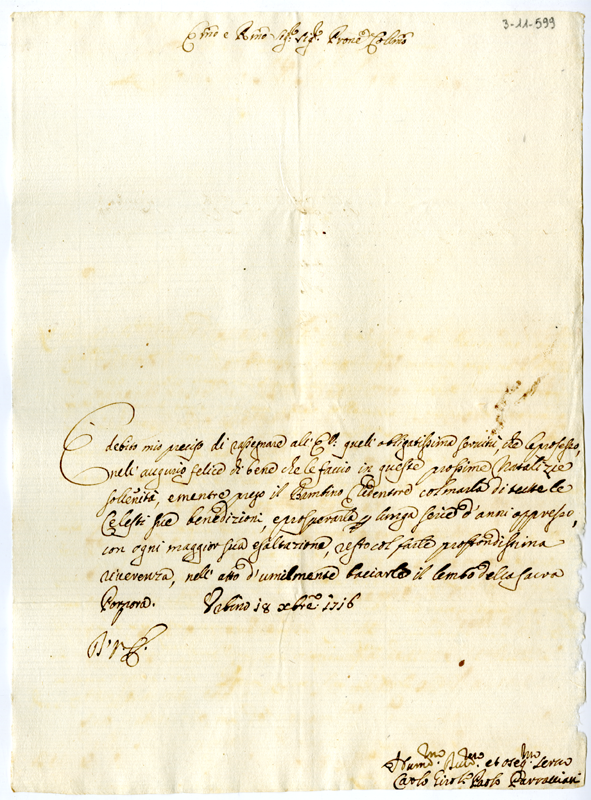 3-11-599
Emõ e Rmõ Sigr. Sigr. Prone Collmo
E debito mio preciso di rasegnare all'E.V. quell'obligatissima servitù, che le professo,
nell'augurio felice di bene che le faccio in queste prossime Natalizie
sollenità, e mentre prego il Bambino Redentore colmarla di tutte le
Celesti sue benedizioni, e prosperarla p lunga serie d'anni appresso,
con ogni maggior sua esaltazione, resto col farle profondissima
riverenza, nell'atto d'umilmente baciarle il lembo della sacra
Porpora. Urbino 18 Xbre 1716
D. V. E.
Humo. Divmo. et oseqmo servo
Carlo Paolo